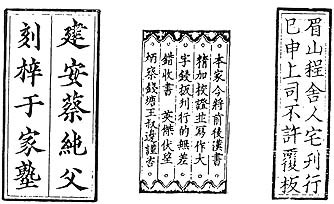 眉山程舍人宅刊行
已申上司不許覆板
本家今將前後漢書
精加校證並寫作大
字鋟板刊行的無差
錯收書 英傑伏望
炳察錢塘王叔邊謹咨
建安蔡純父
刻梓于家塾